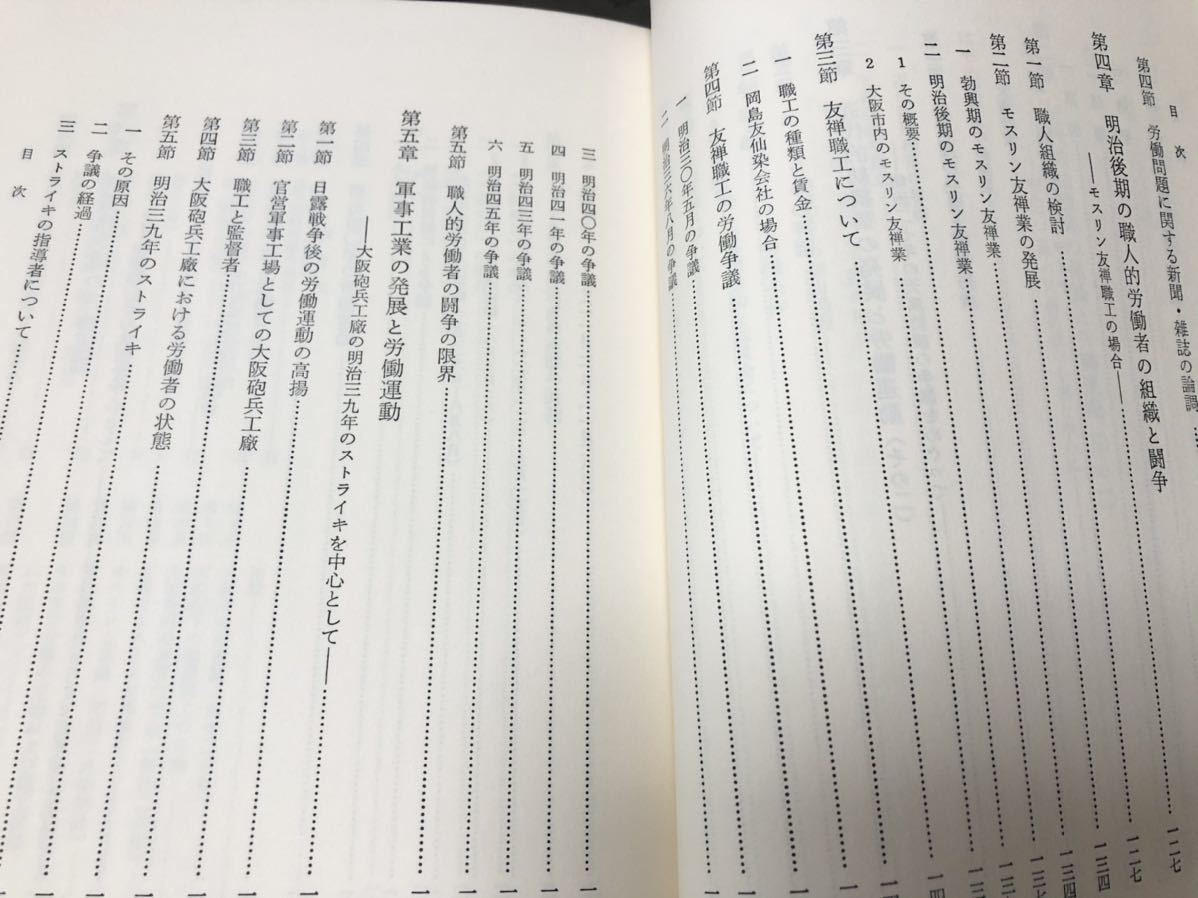 目次
第四節 労働問題に関する新聞・雑誌の論調……一二七
第四章 明治後期の職人的労働者の組織と闘争……一二七
――モスリン友禅職工の場合――
第一節 職人組織の検討……一三四
第二節 モスリン友禅業の発展
一 勃興期のモスリン友禅業
二 明治後期のモスリン友禅業
1 その概要
2 大阪市内のモスリン友禅業
第三節 友禅職工について
一 職工の種類と賃金
二 岡島友仙染会社の場合
第四節 友禅職工の労働争議
一 明治三〇年五月の争議
二 明治三六年八月の争議
三 明治四〇年の争議
四 明治四一年の争議
五 明治四三年の争議
六 明治四五年の争議
第五節 職人的労働者の闘争の限界
第五章 軍事工業の発展と労働運動
――大阪砲兵工廠の明治三九年のストライキを中心として――
第一節 日露戦争後の労働運動の高揚
第二節 官営軍事工場としての大阪砲兵工廠
第三節 職工と監督者
第四節 大阪砲兵工廠における労働者の状態
第五節 明治三九年のストライキ
一 その原因
二 争議の経過
三 ストライキの指導者について
目次